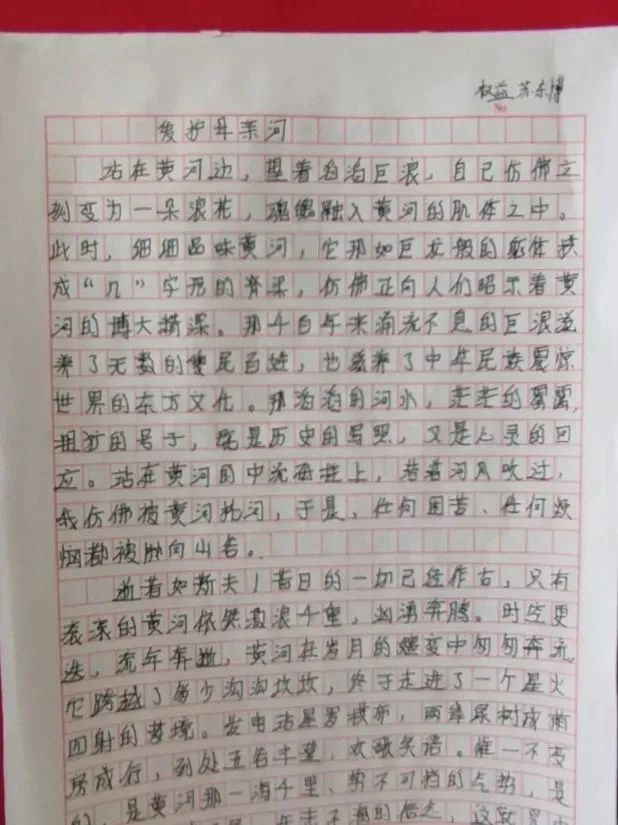 权益 苏东博
No
爱护母亲河
站在黄河边，望着滔滔巨浪，自己仿佛立
刻变为一朵浪花，魂绕融入黄河的肌体之中。
此时，细细品味黄河，它那如巨龙般的躯体
成“几”字形的脊梁，仿佛正向人们昭示着黄
河的博大精深。那千百年来涌流不息的巨浪滋
养了无数的黎民百姓，也养了中华民族震惊
世界的东方文化。那滔滔的河水，茫茫的雾霭，
粗犷的号子，既是历史的写照，又是心灵的回
应。站在黄河的中流上，若着河风吹过，
我仿佛被黄河，于是，任何困苦、任何
烟都被向山谷。
逝者如斯夫！昔日的一切已经作古，只有
的黄河依然波浪千重，汹涌奔腾。时空更
迭，流年奔，黄河在岁月的变中匆匆奔流
它跨越了多少沟沟坎坎，终于走进了一个星火
四射的梦境。发电站星罗棋布，两岸绿树成荫
成行，到处五谷丰登，欢歌笑语。唯一不变
的，是黄河那一泻千里、势不可挡的气势，是
年走不的信念，这